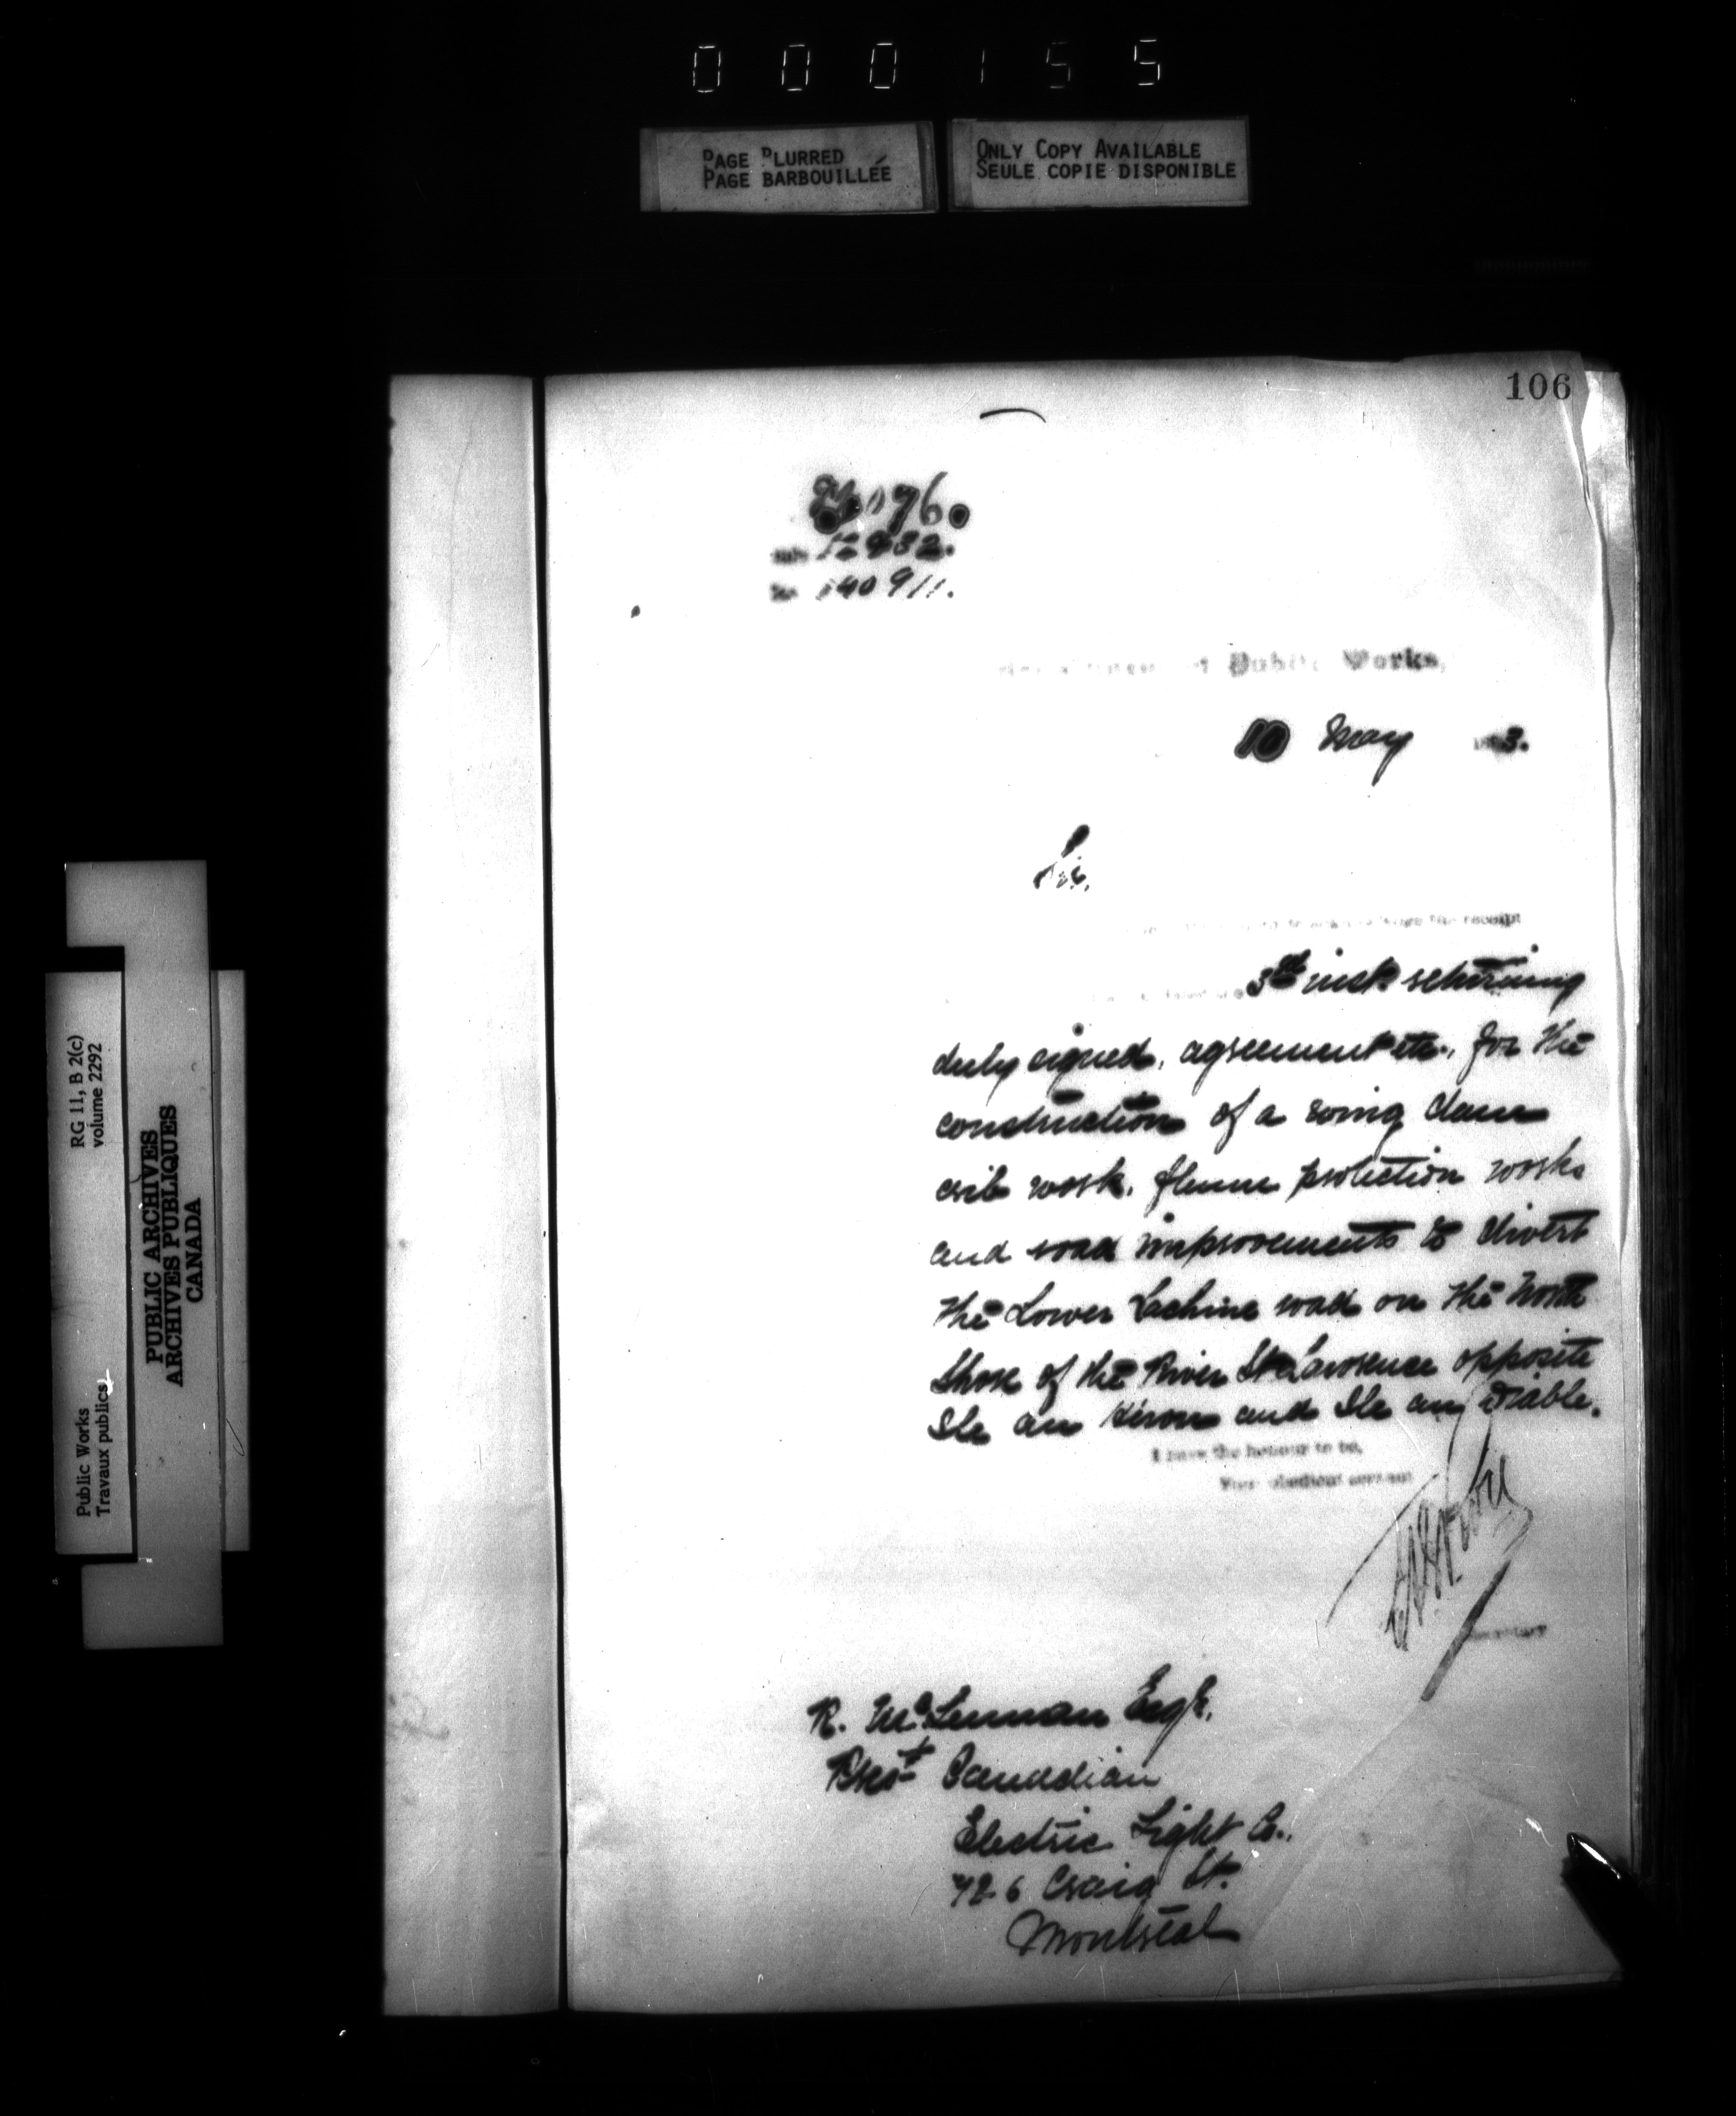 000155
PAGE BLURRED
PAGE BARBOUILLÉE
ONLY COPY AVAILABLE
SEULE COPIE DISPONIBLE
106
76.
12932.
No 140911.
Department of Public Works,
10 May 3.
Sir,
to acknowledge the receipt
3rd inst returning
duly signed, agreement etc., for the
construction of a wing dam
crib work, flume protection works
and road improvements to divert
the Lower Lachine road on the North
Shore of the River St. Lawrence opposite
Ile au Heron and Ile au Diable.
I have the honour to be,
Your obedient servant
Secretary
R. McLennan Esqr.
Prest Canadian
Electric Light Co.,
726 Craig St.
Montreal
RG 11, B 2(c)
volume 2292
PUBLIC ARCHIVES
ARCHIVES PUBLIQUES
CANADA
Public Works
Travaux publics